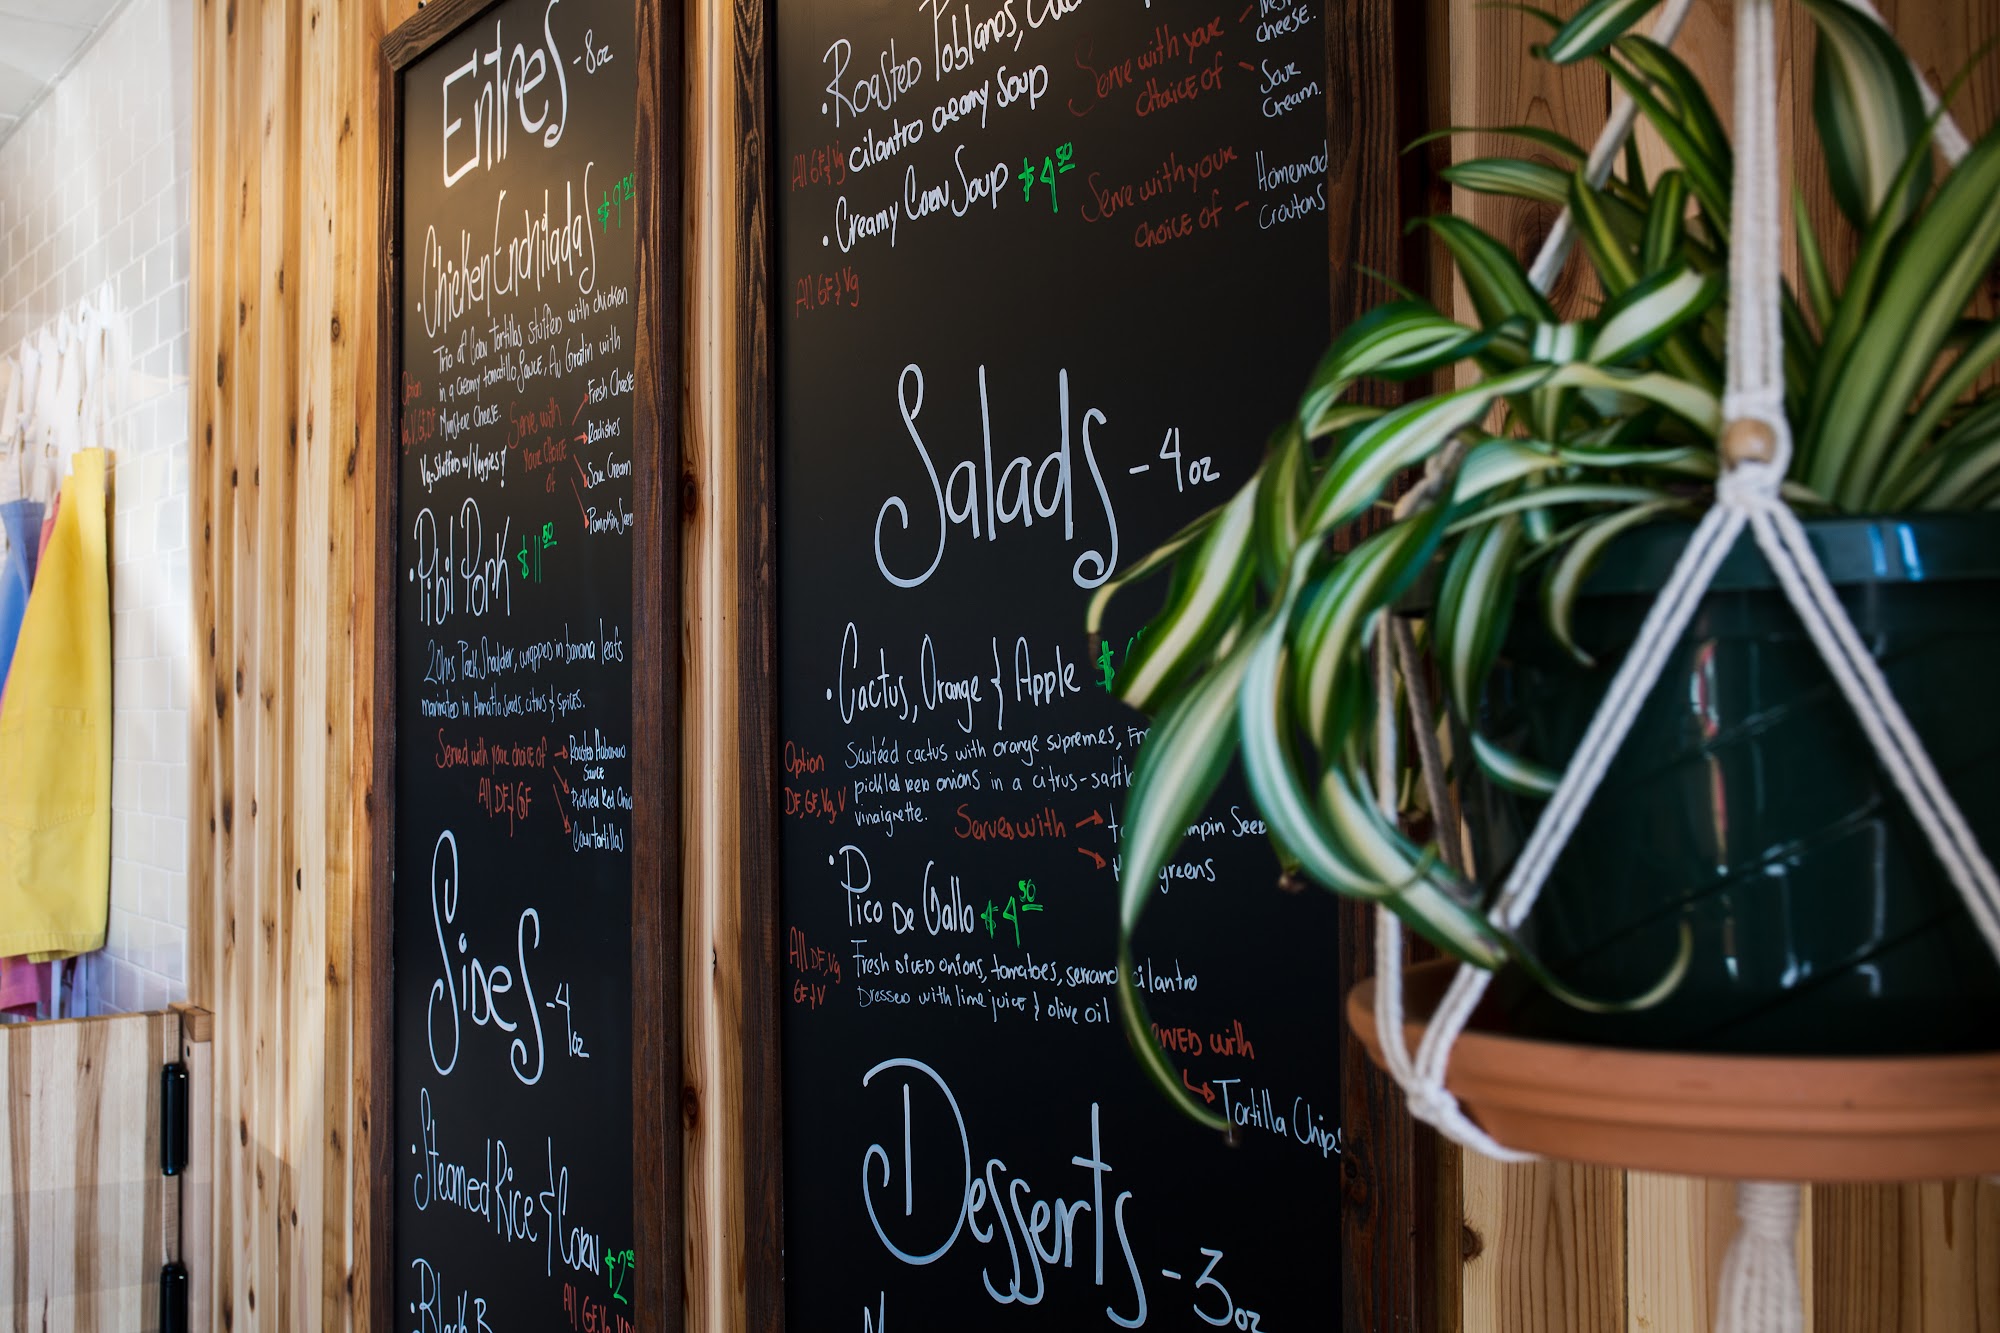 Entres - 8oz
• Chicken Enchiladas $9 50
Trio of Corn tortillas stuffed with chicken
in a creamy tomatillo Sauce, Au Gratin with
Munster Cheese.
Option
Vg, V, GF, DF
Vg-Stuffed w/ Veggies!
Serve with
your choice
of
Fresh Cheese
Radishes
Sour Cream
Pumpkin Seed
• Pibil Pork $11 50
20hrs Pork Shoulder, wrapped in banana leafs
marinated in Annatto seeds, citrus & spices.
Served with your choice of
All DF & GF
Roasted Habanero
Sauce
Pickled Red Onio
Corn tortillas
Sides - 4oz
• Steamed Rice & Corn $2
All GF, Vg
• Black B
• Roasted Poblanos,
cilantro creamy soup
All GF & Vg
Serve with your
choice of -
cheese.
Sour
Cream.
• Creamy Corn Soup $4 50
All GF & Vg
Serve with your
choice of -
Homemad
Croutons
Salads - 4oz
• Cactus, Orange & Apple $
Option
DF, GF, Vg, V
Sautéed cactus with orange supremes,
pickled red onions in a citrus-
vinaigrette.
Served with
Seed
greens
• Pico De Gallo $4 50
All DF, Vg
GF & V
Fresh diced onions, tomatoes, serrano cilantro
Dressed with lime juice & olive oil
with
Tortilla Chips
Desserts - 3oz